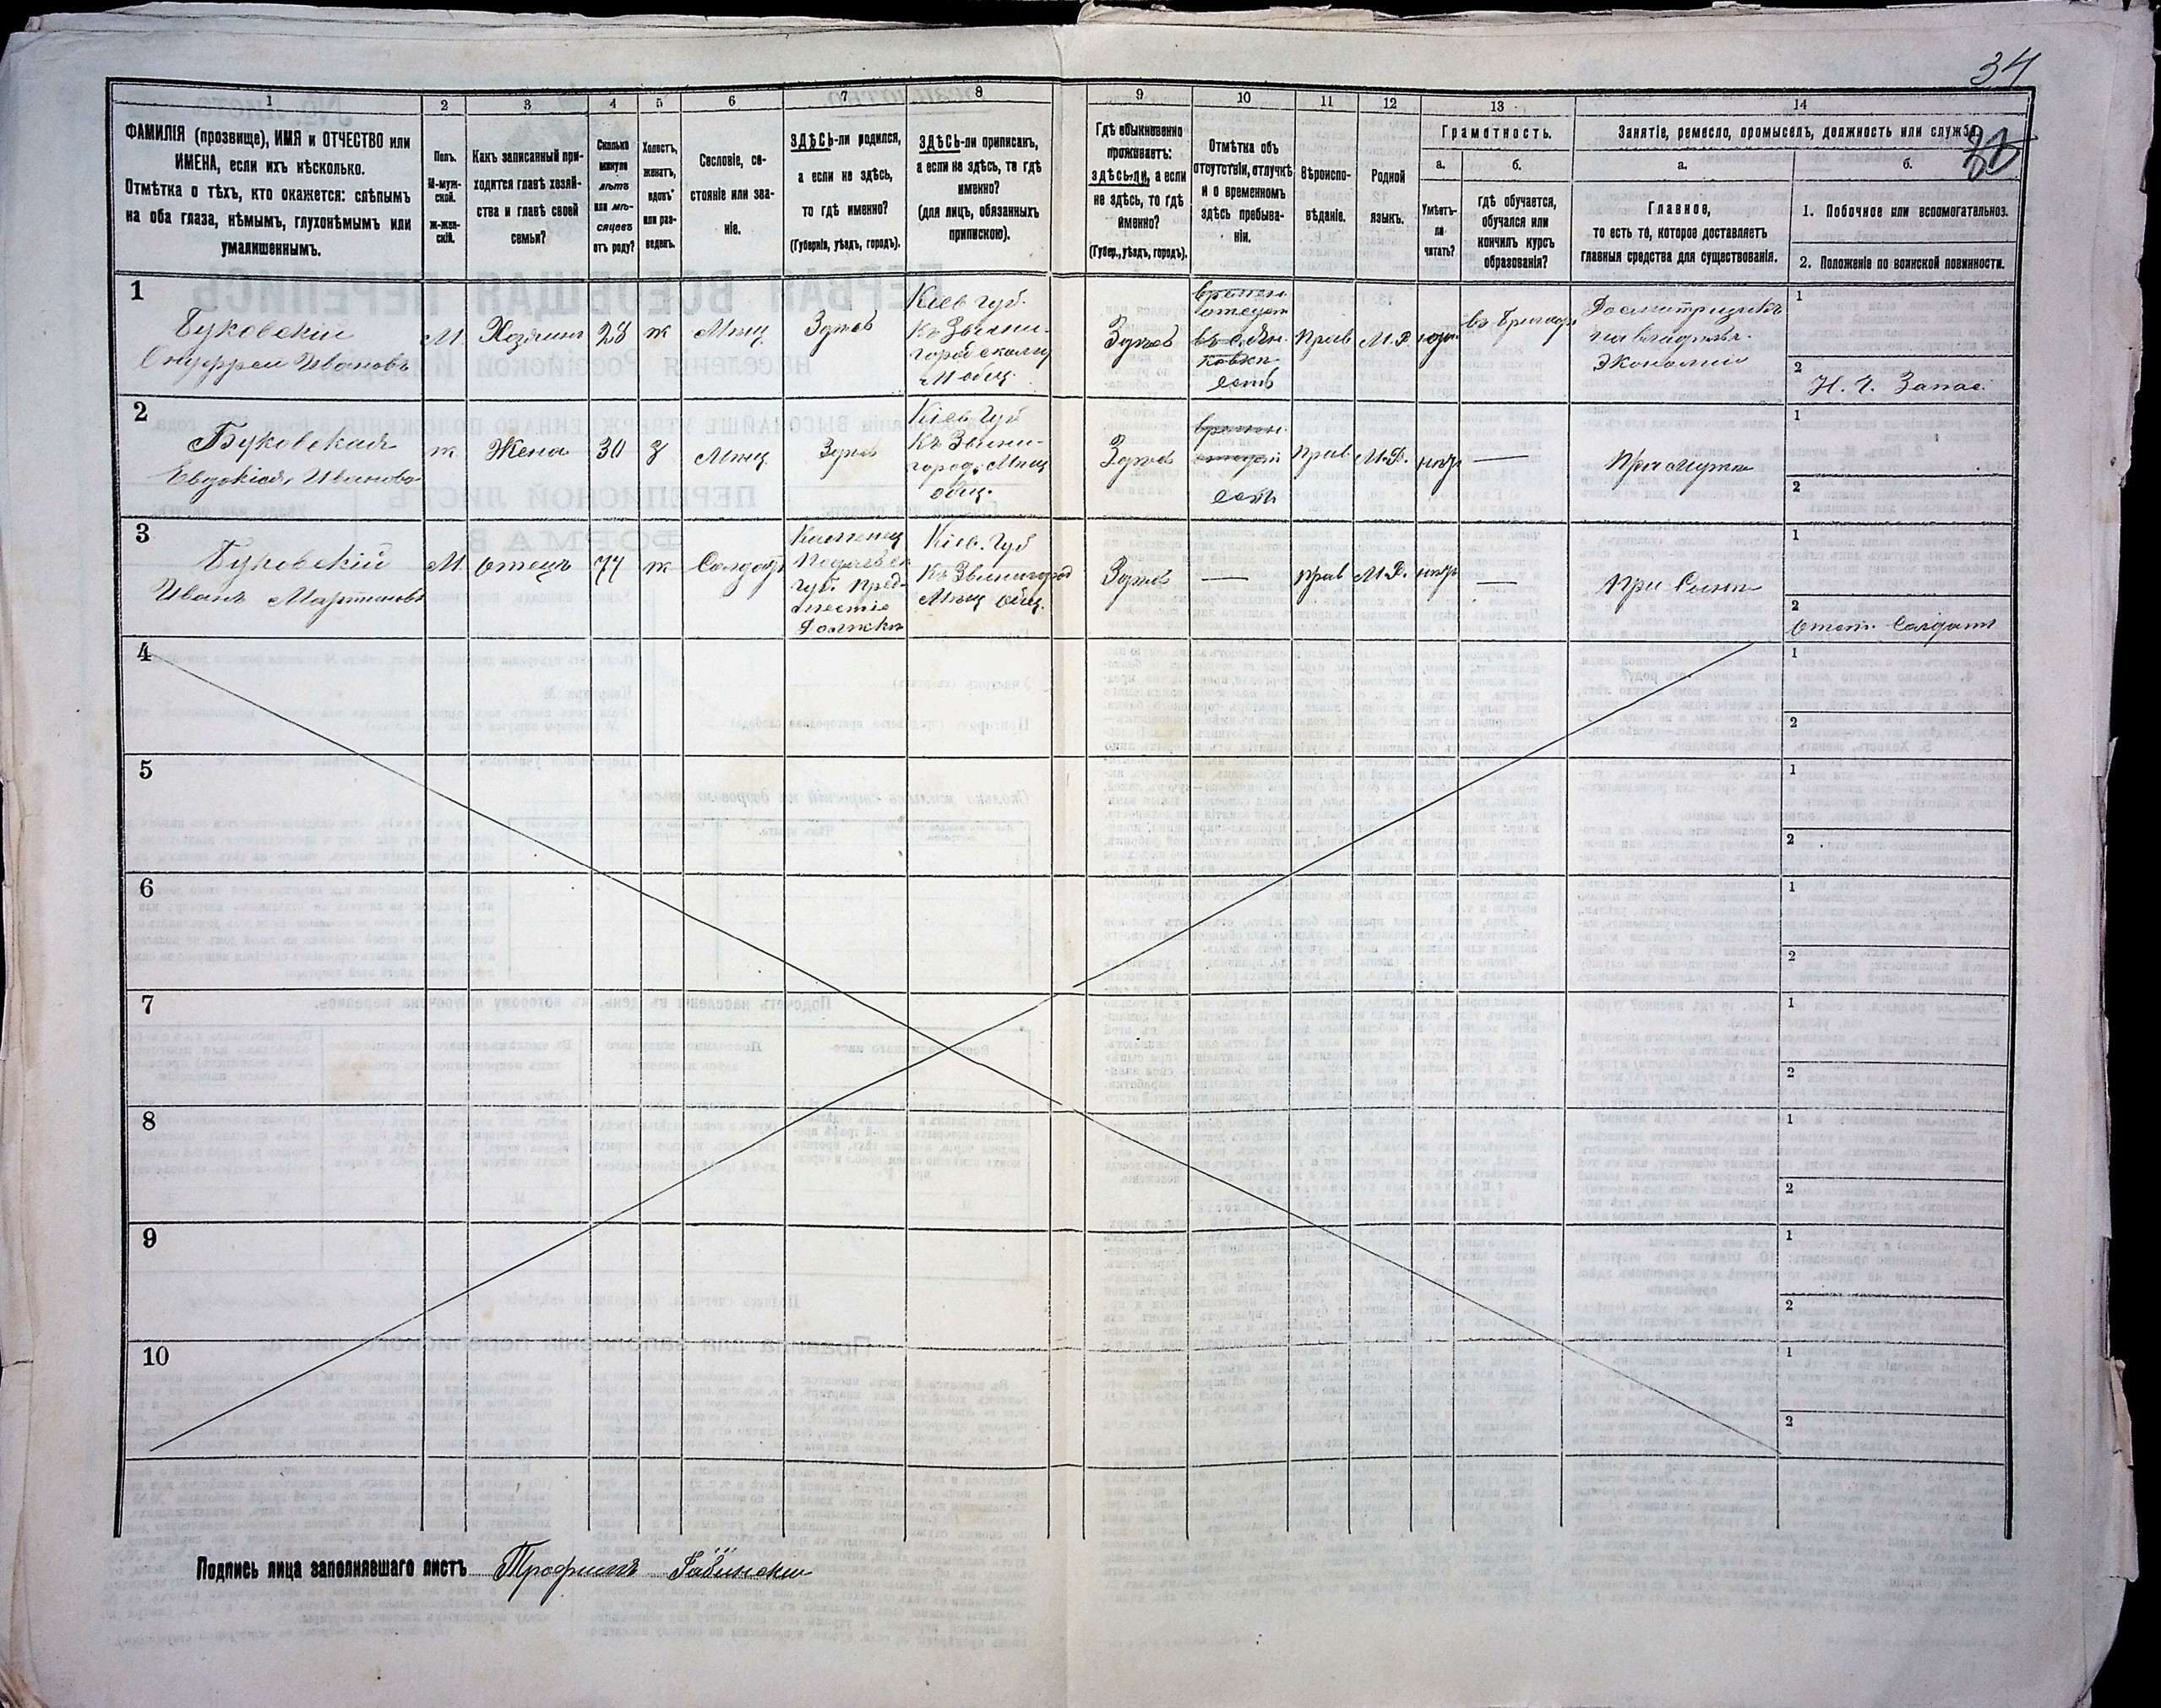 34
1
2
3
4
5
6
7
8
9
10
11
12
13
14
ФАМИЛІЯ (прозвище), ИМЯ и ОТЧЕСТВО или
ИМЕНА, если ихъ нѣсколько.
Отмѣтка о тѣхъ, кто окажется: слѣпымъ
на оба глаза, нѣмымъ, глухонѣмымъ или
умалишеннымъ.
Полъ.
М-муж-
ской.
Ж-жен-
скій.
Какъ записанный при-
ходится главѣ хозяй-
ства и главѣ своей
семьи?
Сколько
минуло
лѣтъ
или мѣ-
сяцевъ
отъ роду?
Холостъ,
женатъ,
вдовъ
или раз-
веденъ.
Сословіе, со-
стояніе или зва-
ніе.
ЗДѢСЬ-ли родился,
а если не здѣсь,
то гдѣ именно?
(Губернія, уѣздъ, городъ).
ЗДѢСЬ-ли приписанъ,
а если не здѣсь, то гдѣ
именно?
(для лицъ, обязанныхъ
припискою).
Гдѣ обыкновенно
проживаетъ:
здѣсь-ли, а если
не здѣсь, то гдѣ
именно?
(Губер., уѣздъ, городъ).
Отмѣтка объ
отсутствіи, отлучкѣ
и о временномъ
здѣсь пребыва-
ніи.
Вѣроиспо-
вѣданіе.
Родной
языкъ.
Грамотность.
а.
б.
Умѣетъ-
ли
читать?
гдѣ обучается,
обучался или
кончилъ курсъ
образованія?
Занятіе, ремесло, промыселъ, должность или служба.
а.
б.
Главное,
то есть то, которое доставляетъ
главныя средства для существованія.
1. Побочное или вспомогательноз.
2. Положеніе по воинской повинности.
1
Буковскій
Онуфрей Ивановъ
М.
Хозяинъ
28
ж
Мѣщ.
Здѣсь
Кіев. губ.
Къ Звени-
город
М общ.
Здѣсь
есть
Прав
М.Р.
въ бригадѣ
Экономіи
1
2
Н. Ч. Запас.
2
Буковская
Евдокія, Иванова
ж.
Жена
30
З
Мѣщ
Здѣсь
Кіев Губ
Къ Звени-
город. Мѣщ
общ.
Здѣсь
есть
прав
М.Р.
нѣт
—
При мужѣ
1
2
3
Буковскій
Иванъ Мартиновъ
М.
Отецъ
77
ж
Солдат
Каменец
Подольск
губ. Пред-
мѣстіе
Должки
Кіев. Губ
Къ Звинигород
Мѣщ общ.
Здѣсь
—
прав
М.Р.
нѣт
—
При Сынѣ
1
2
Отст. Солдатъ
4
1
2
5
1
2
6
1
2
7
1
2
8
1
2
9
1
2
10
1
2
Подпись лица заполнявшаго листъ Трофимъ